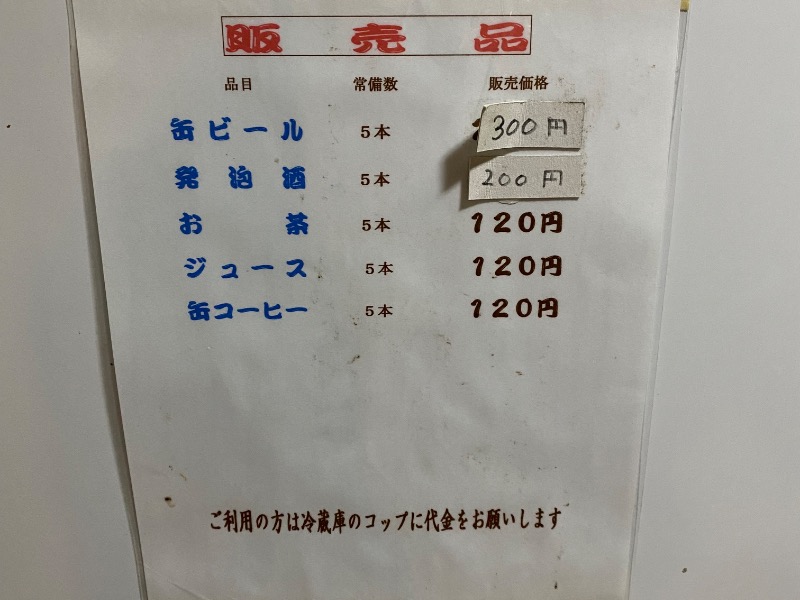 販売品
品目 常備数 販売価格
缶ビール 5本 300円
発泡酒 5本 200円
お茶 5本 120円
ジュース 5本 120円
缶コーヒー 5本 120円
ご利用の方は冷蔵庫のコップに代金をお願いします